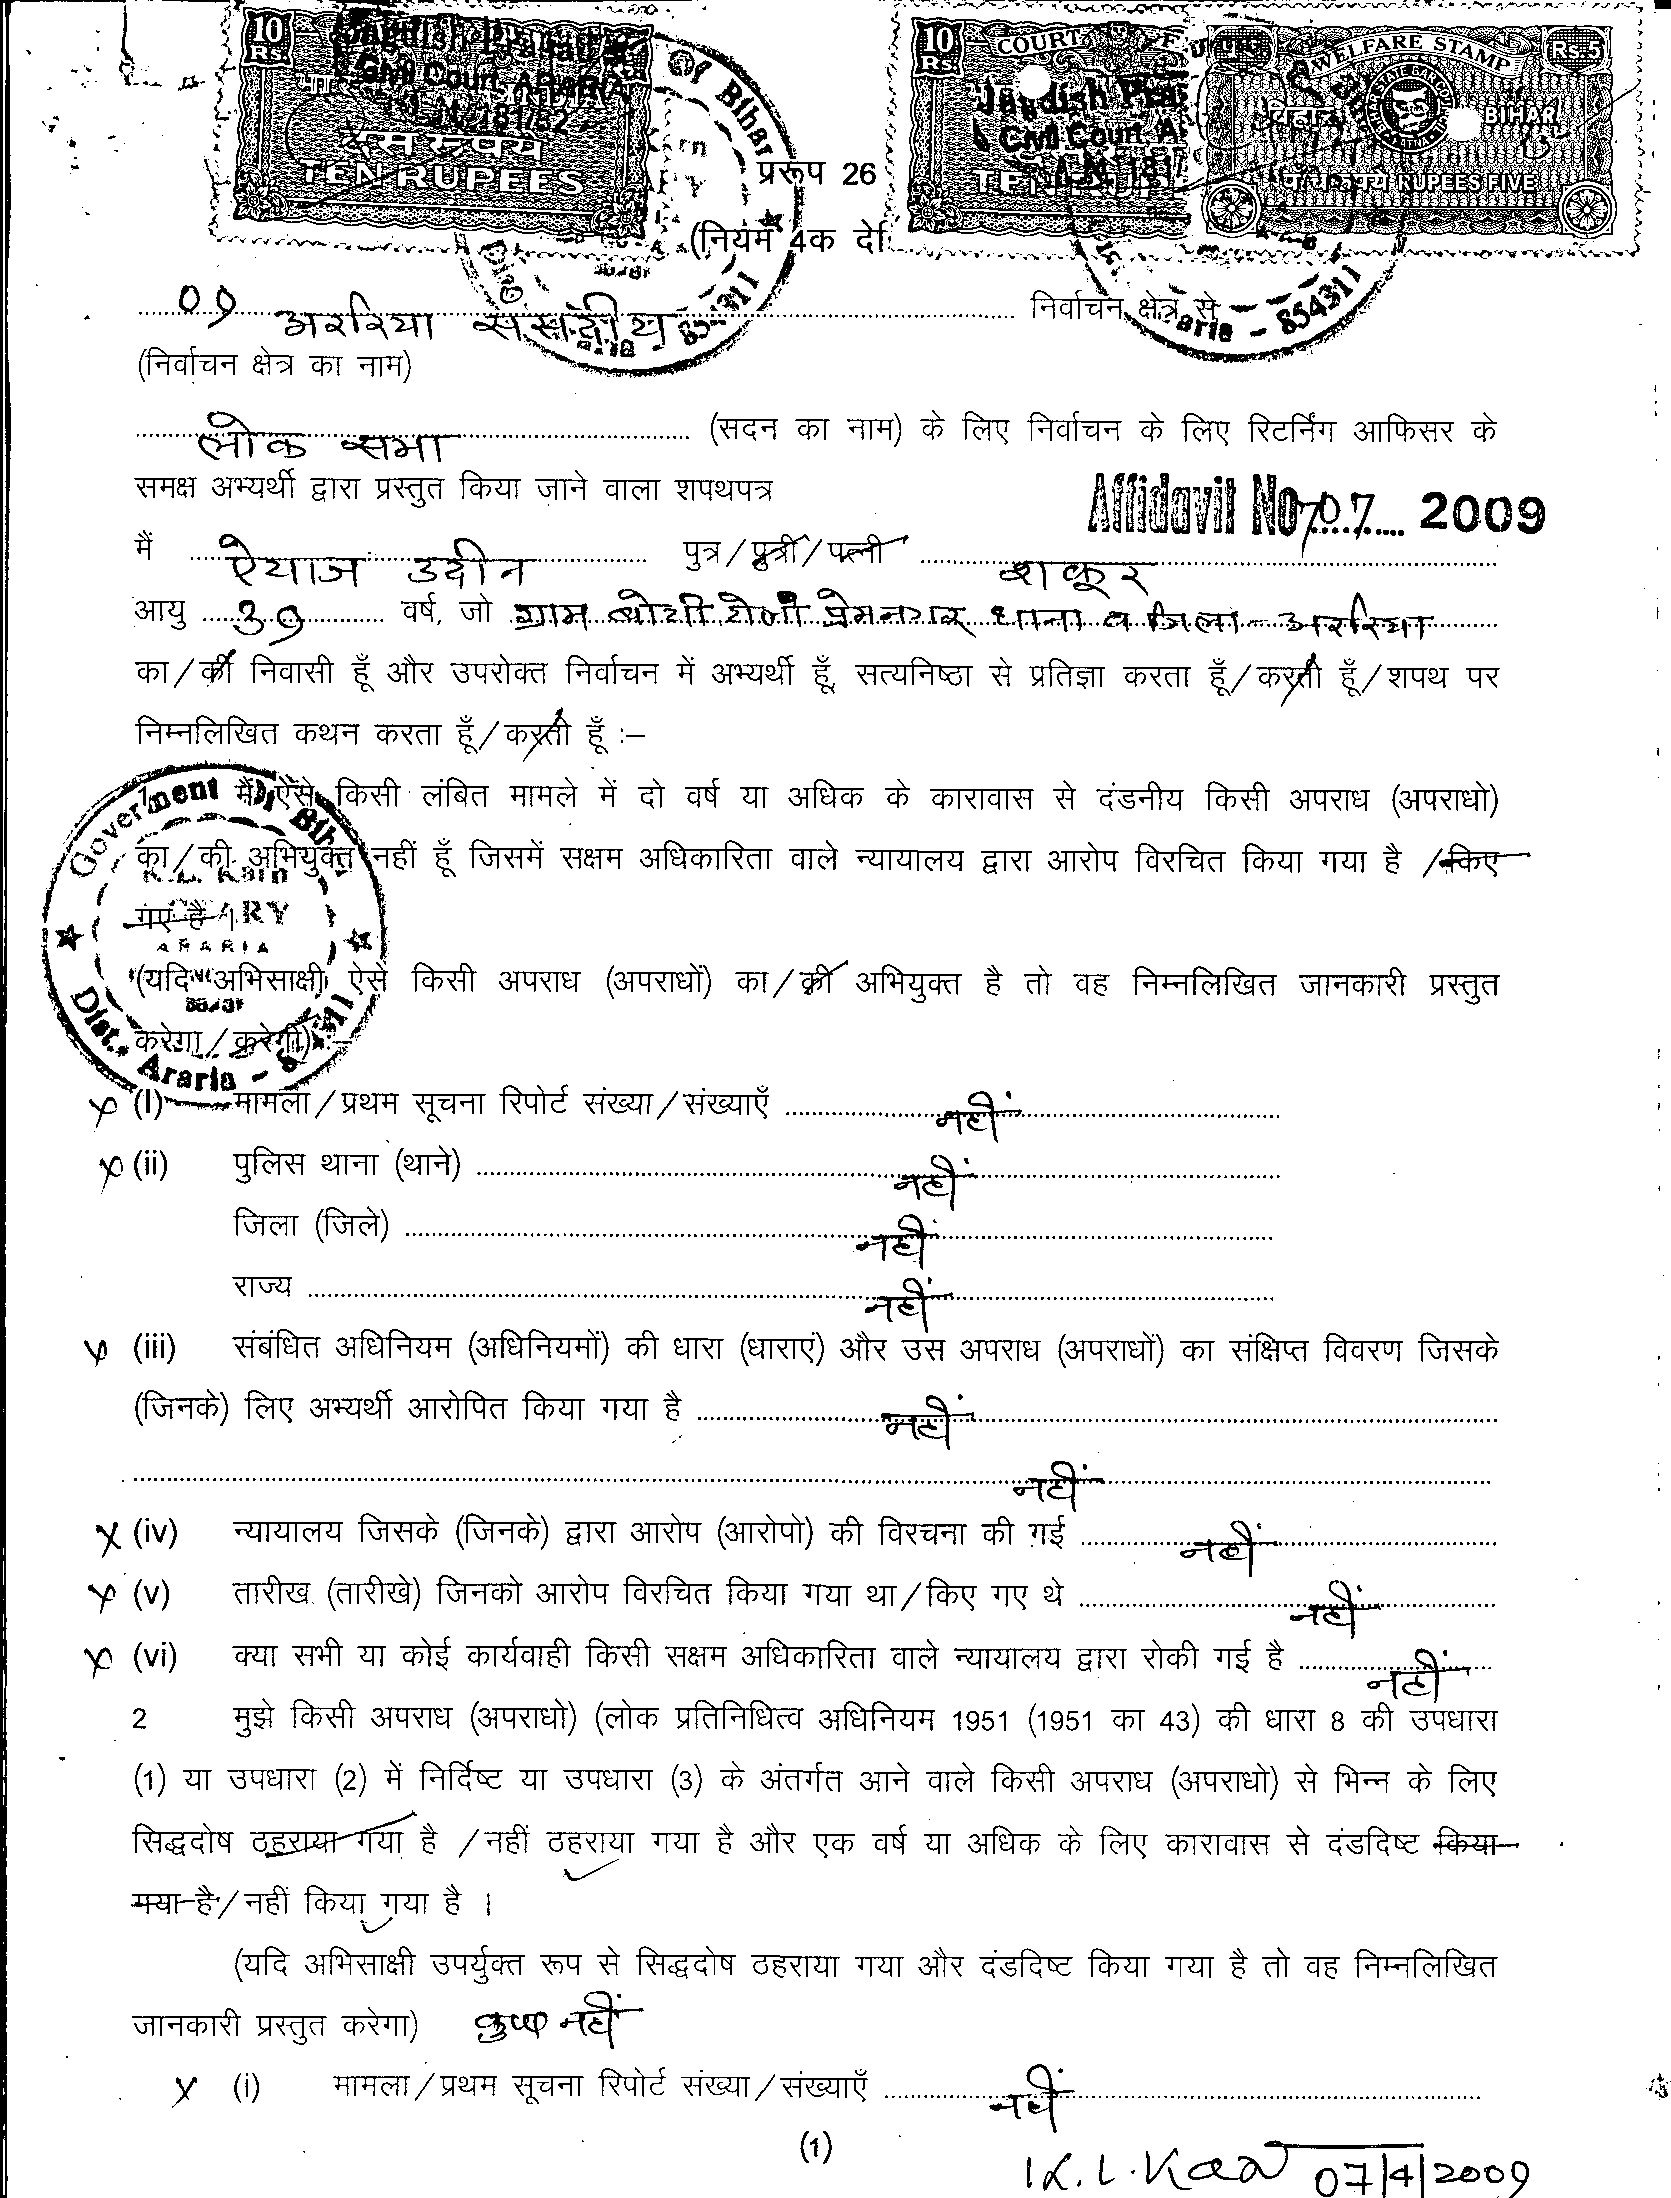 10 Rs.
Civil Court, ARARIA
दस रुपये
TEN RUPEES
of Bihar
10 Rs.
COURT FEE
Jagdish Pra
Civil Court, A
WELFARE STAMP
Rs. 5
बिहार
BIHAR
पाँच रुपये RUPEES FIVE
प्ररूप 26
(नियम 4क दे
09 अररिया ससदीय निर्वाचन क्षेत्र से
Araria - 854311
(निर्वाचन क्षेत्र का नाम)
लोक सभा (सदन का नाम) के लिए निर्वाचन के लिए रिटर्निंग आफिसर के
समक्ष अभ्यर्थी द्वारा प्रस्तुत किया जाने वाला शपथपत्र
Affidavit No 707 2009
मैं ऐयाज उद्दीन पुत्र/पुत्री/पत्नी शकूर
आयु 39 वर्ष, जो ग्राम प्रेमनगर थाना व जिला-अररिया
का/की निवासी हूँ और उपरोक्त निर्वाचन में अभ्यर्थी हूँ, सत्यनिष्ठा से प्रतिज्ञा करता हूँ/करती हूँ/शपथ पर
निम्नलिखित कथन करता हूँ/करती हूँ :–
मैं ऐसे किसी लंबित मामले में दो वर्ष या अधिक के कारावास से दंडनीय किसी अपराध (अपराधो)
का/की अभियुक्त नहीं हूँ जिसमें सक्षम अधिकारिता वाले न्यायालय द्वारा आरोप विरचित किया गया है /किए
गए है ।
Government of Bihar
K. L. Karn
ARARIA
Dist., Araria - 854311
(यदि अभिसाक्षी ऐसे किसी अपराध (अपराधों) का/की अभियुक्त है तो वह निम्नलिखित जानकारी प्रस्तुत
करेगा/करेगी) :–
x (I) मामला/प्रथम सूचना रिपोर्ट संख्या/संख्याएँ नहीं
x (ii) पुलिस थाना (थाने) नहीं
जिला (जिले) नहीं
राज्य नहीं
x (iii) संबंधित अधिनियम (अधिनियमों) की धारा (धाराएं) और उस अपराध (अपराधों) का संक्षिप्त विवरण जिसके
(जिनके) लिए अभ्यर्थी आरोपित किया गया है नहीं
नहीं
x (iv) न्यायालय जिसके (जिनके) द्वारा आरोप (आरोपो) की विरचना की गई नहीं
x (v) तारीख (तारीखे) जिनको आरोप विरचित किया गया था/किए गए थे नहीं
x (vi) क्या सभी या कोई कार्यवाही किसी सक्षम अधिकारिता वाले न्यायालय द्वारा रोकी गई है नहीं
2 मुझे किसी अपराध (अपराधो) (लोक प्रतिनिधित्व अधिनियम 1951 (1951 का 43) की धारा 8 की उपधारा
(1) या उपधारा (2) में निर्दिष्ट या उपधारा (3) के अंतर्गत आने वाले किसी अपराध (अपराधो) से भिन्न के लिए
सिद्धदोष ठहराया गया है /नहीं ठहराया गया है और एक वर्ष या अधिक के लिए कारावास से दंडदिष्ट किया
गया है/नहीं किया गया है ।
(यदि अभिसाक्षी उपर्युक्त रूप से सिद्धदोष ठहराया गया और दंडदिष्ट किया गया है तो वह निम्नलिखित
जानकारी प्रस्तुत करेगा) कुछ नहीं
x (i) मामला/प्रथम सूचना रिपोर्ट संख्या/संख्याएँ नहीं
(1)
K. L. Karn 07/4/2009